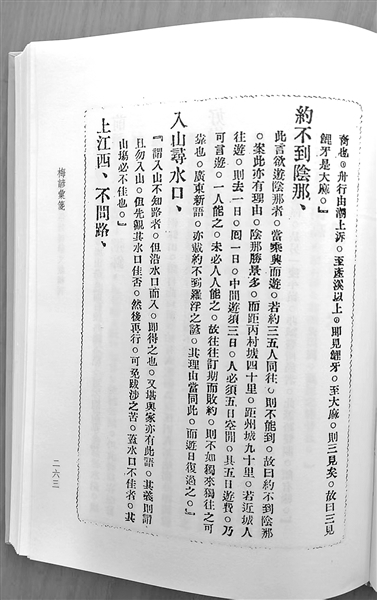 也。舟行由潮上訴。至產溪以上。卽見牙。至大麻。則三見矣。故曰三見
牙是大麻。』
約不到陰那、
此言欲遊陰那者。當乘興而遊。若約三五人同往。則不能到。故曰約不到陰那
。案此亦有理由。陰那勝景多。而距丙村城四十里。距州城九十里。若近城人
往遊。則去一日。回一日。中間遊須三日。人必須五日空閒。具五日遊費。乃
可言遊。一人能之。未必人人能之。故往往訂期而敗約。則不如獨來獨往之可
靠也。廣東新語。亦載約不到羅浮之諺。其理由當同此。而遊日復過之。』
入山尋水口、
『謂入山不知路者。但沿水口而入。卽得之也。又堪輿家亦有此語。其義則謂
且勿入山。但先觀其水口佳否。然後再行。可免跋涉之苦。蓋水口不佳者。其
山塲必不佳也。』
上江西、不問路、
梅諺彙箋
二六三